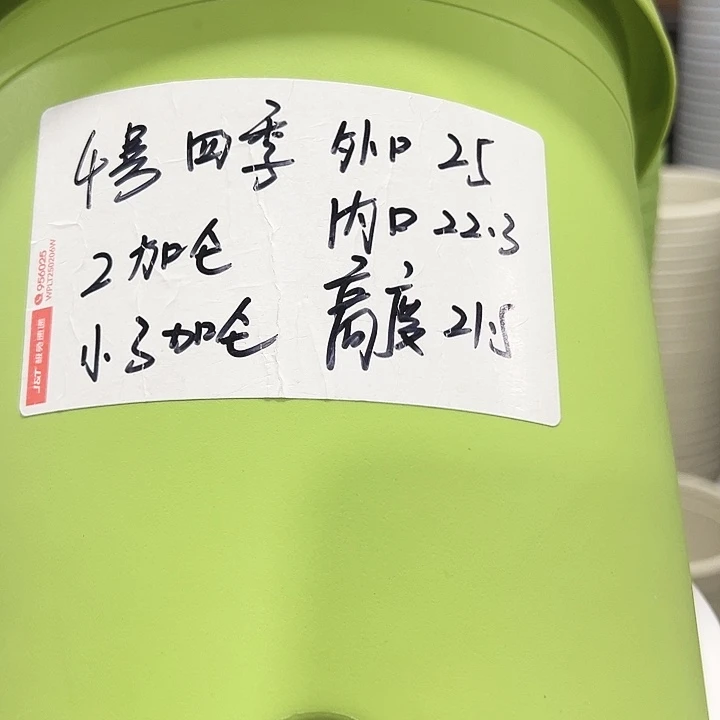 4号 四季 外口 25
内口 22.3
2加仑
高度 21.5
小3加仑
956025
WPLT250206W
J&T 极兔速递